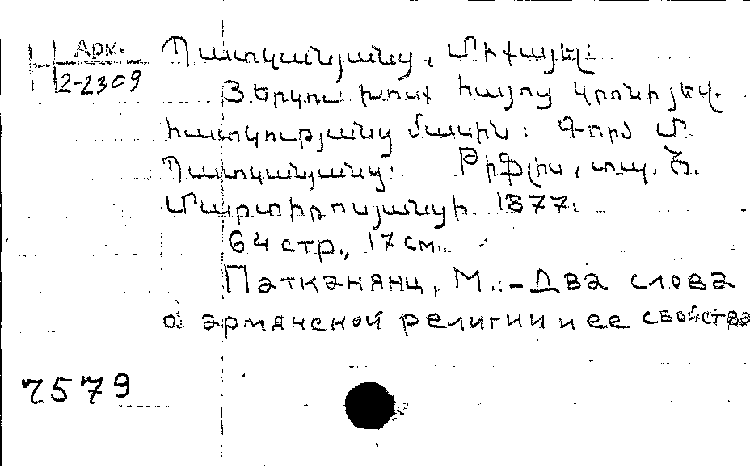 Арм.
2-2309
Պատկանյանց, Միքայել:
Յերկու խոսք հայոց կրոնի յեվ
հատկությանց մասին: Գործ Մ.
Պատկանյանց: Թիֆլիս, տպ. Հ.
Մարտիրոսյանցի 1877:
64 стр., 17 см.
Патканянц, М.:-Два слова
о армянской религии и ее свойства
7579